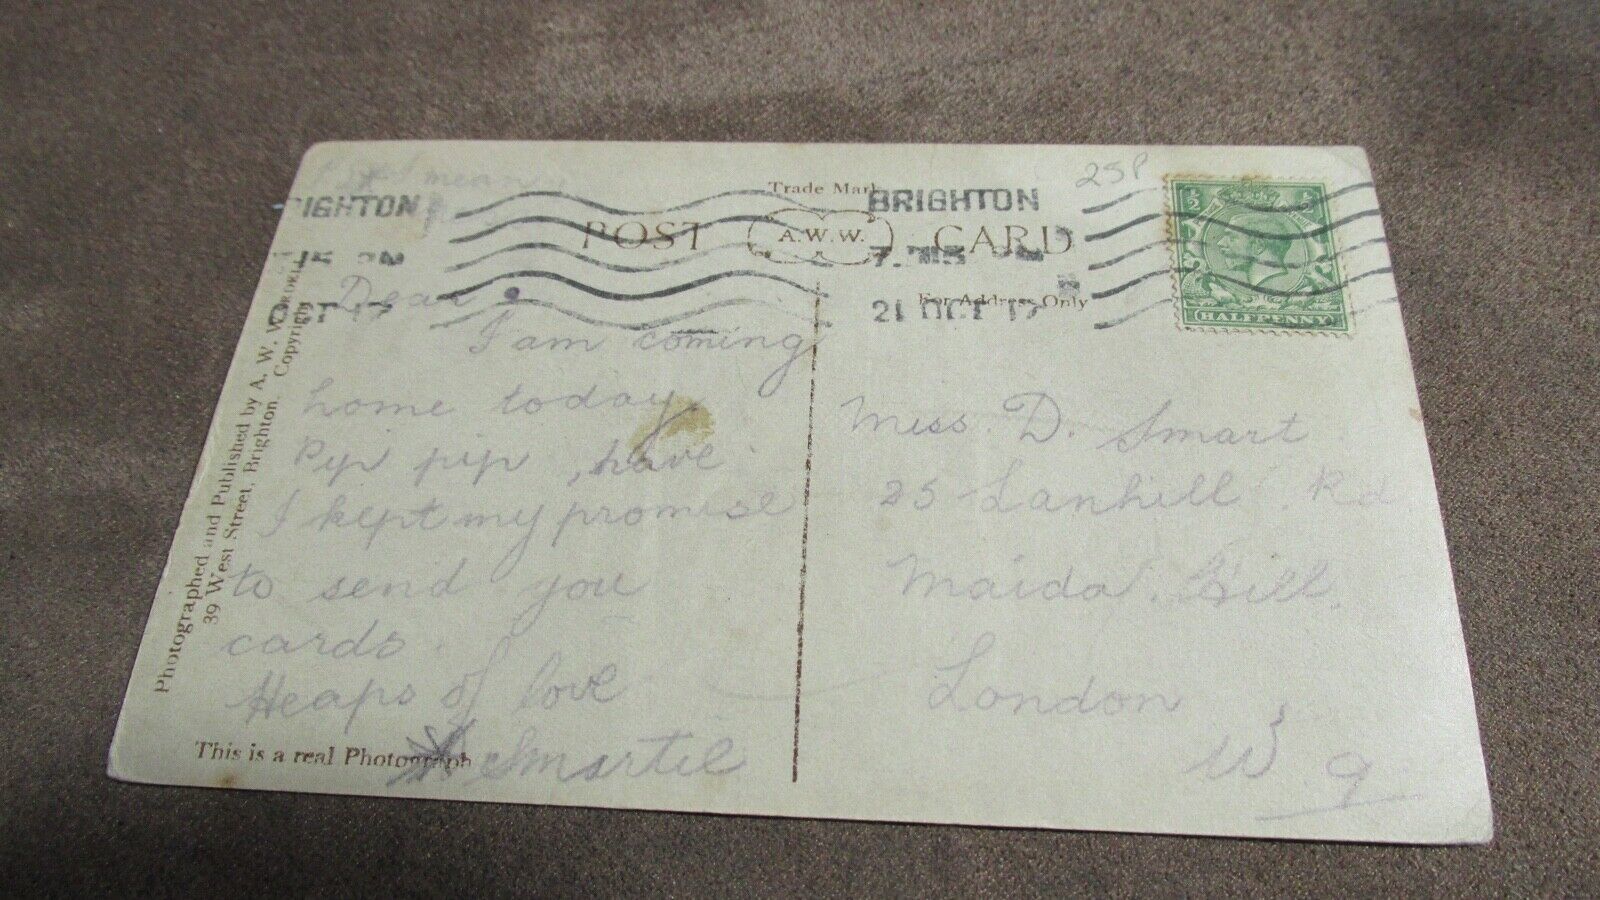 Trade Mark
POST A.W.W. CARD
For Address Only
BRIGHTON
21 OCT 17
IGHTON
OCT 17
25P
½
HALFPENNY
Photographed and Published by A. W. W.
39 West Street, Brighton. Copyright
This is a real Photograph
Dear
I am coming
home today.
Pip pip, have
I kept my promise
to send you
cards.
Heaps of love
Smartie
Miss. D. Smart.
25 Lanhill Rd
Maida. Hill.
London
W. 9.